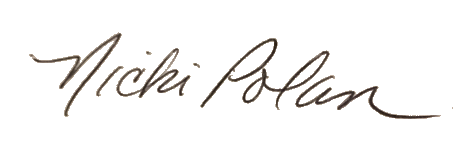 Nicki Polan